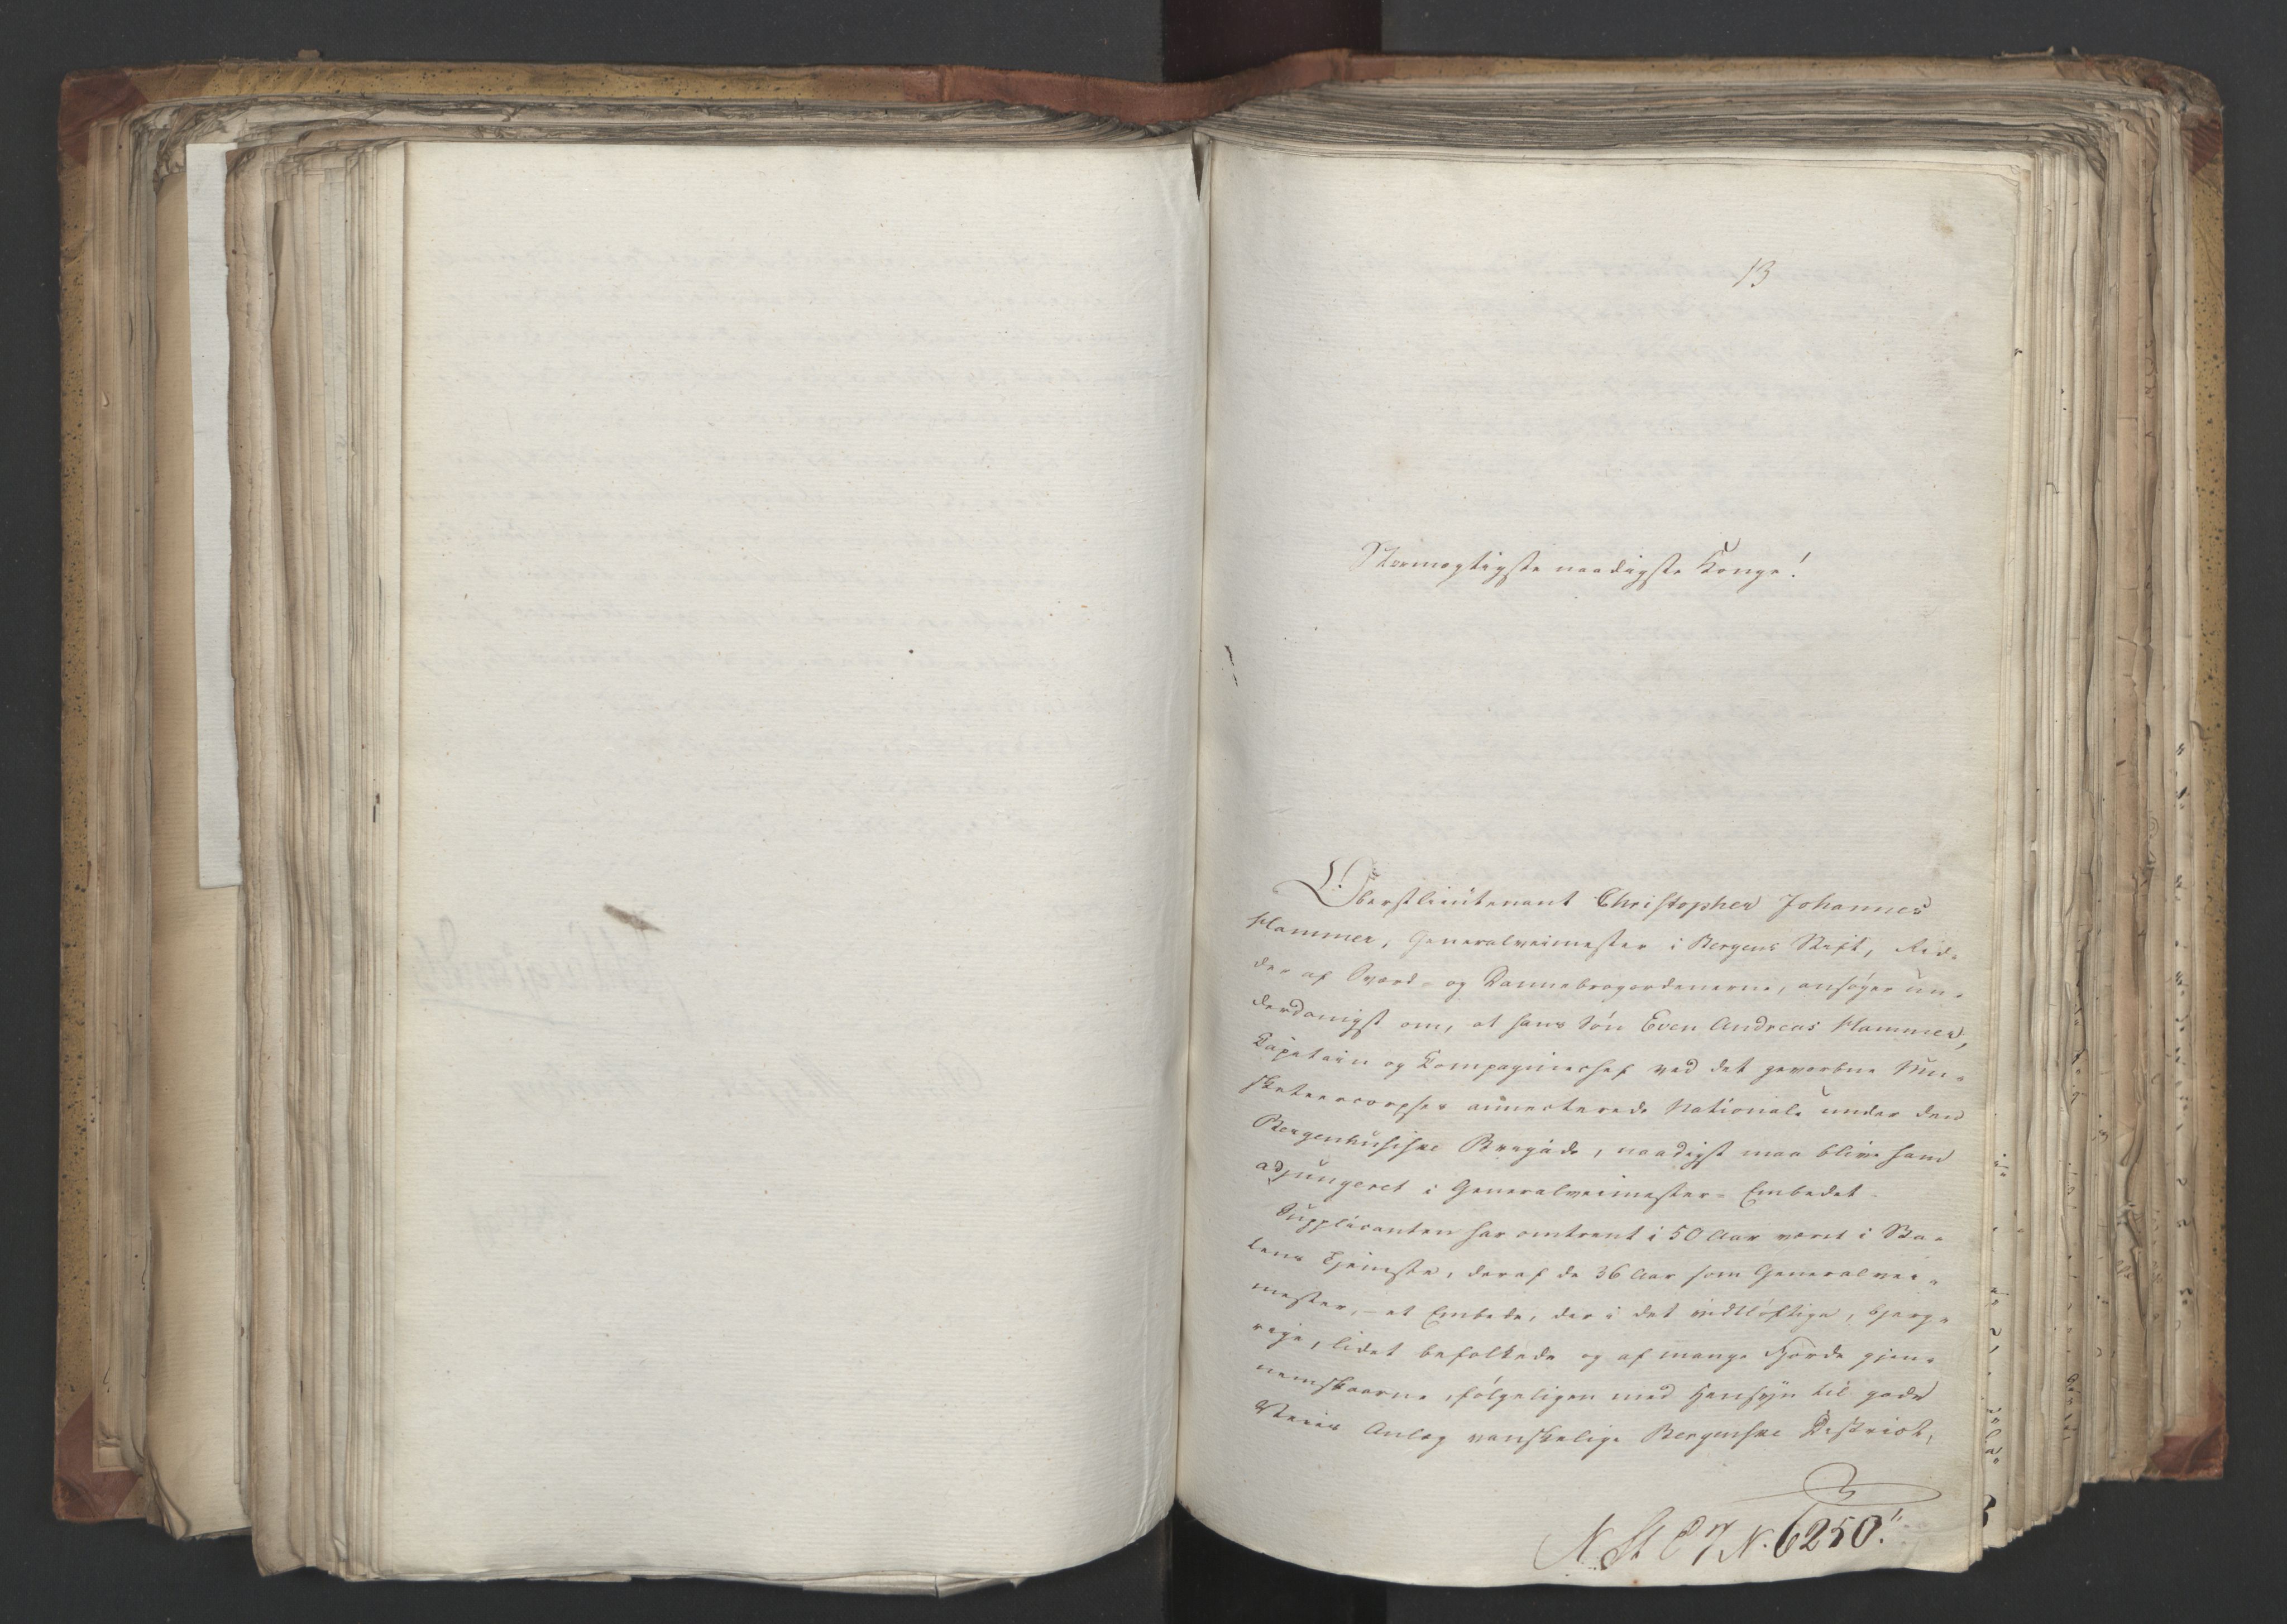 13
Stormægtigste naadigste Konge!
Oberstlieutenant Christopher Johannes
Hammer, Generalveimester i Bergens Stift, Rid-
der af Sværd- og Dannebrogordenerne, ansøger un-
derdanigst om, at hans Søn Even Andreas Hammer,
Capitain og Compagniechef ved det gevorbne Mu-
sketeercorpses annecterede Nationale under den
Bergenhusiske Brigade, naadigst maa blive ham
adjungeret i Generalveimester-Embedet.
Supplicanten har omtrent i 50 Aar været i Sta-
tens Tjeneste, deraf de 36 Aar som Generalvei-
mester, - et Embede, der i det vidtløftige, bjerg-
rige, lidet befolkede og af mange Fjorde gjen-
nemskaarne, følgeligen med Hensyn til gode
Veies Anlæg vanskelige Bergenske District,
N. St. C 7 N. 6250.